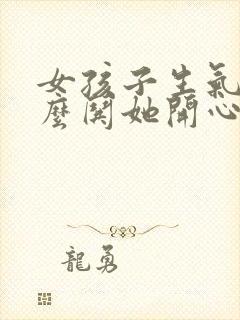 女孩子生氣
麼闋她開心
龍勇